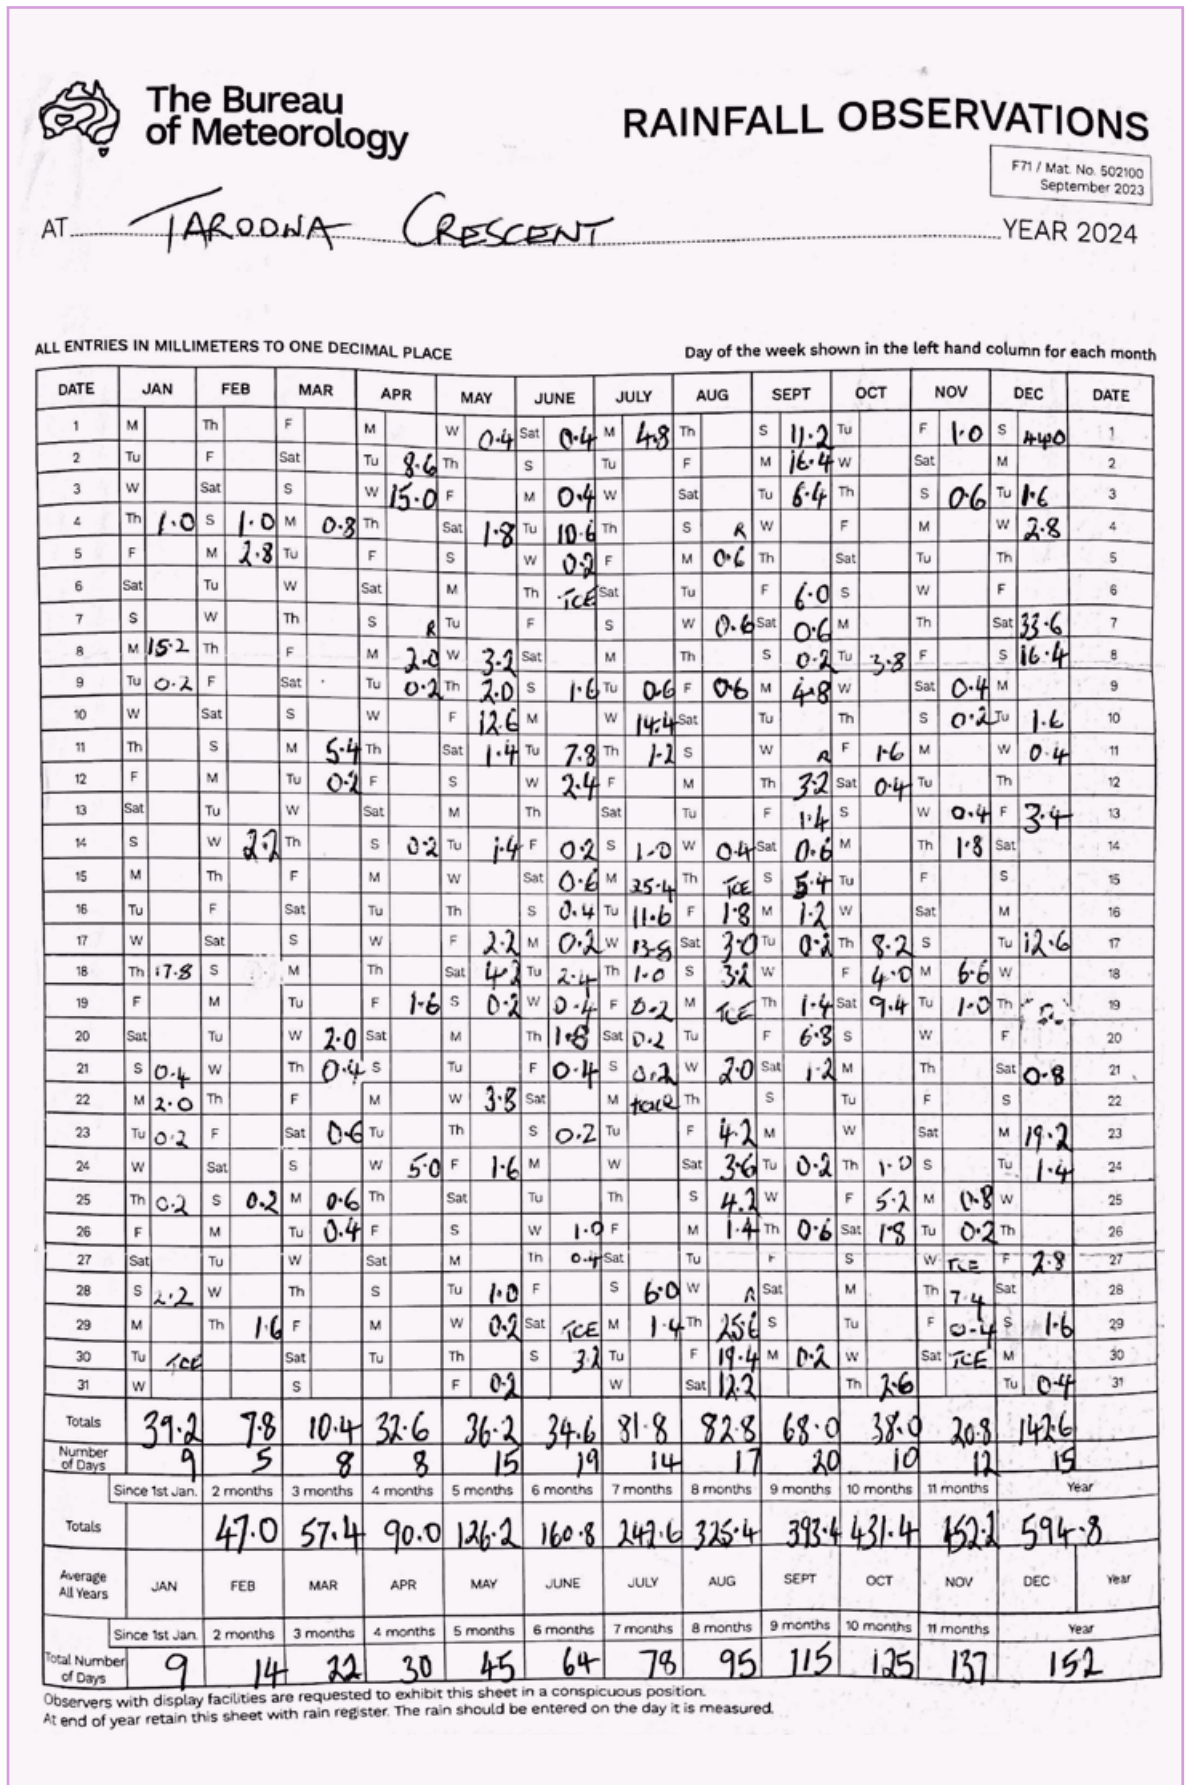 The Bureau
of Meteorology
RAINFALL OBSERVATIONS
F71 / Mat. No. 502100
September 2023
AT TAROONA CRESCENT YEAR 2024
ALL ENTRIES IN MILLIMETERS TO ONE DECIMAL PLACE Day of the week shown in the left hand column for each month
DATE JAN FEB MAR APR MAY JUNE JULY AUG SEPT OCT NOV DEC DATE
1 M Th F M W 0.4 Sat 0.4 M 4.8 Th S 11.2 Tu F 1.0 S 44.0 1
2 Tu F Sat Tu 8.6 Th S Tu F M 16.4 W Sat M 2
3 W Sat S W 15.0 F M 0.4 W Sat Tu 6.4 Th S 0.6 Tu 1.6 3
4 Th 1.0 S 1.0 M 0.8 Th Sat 1.8 Tu 10.6 Th S R W F M W 2.8 4
5 F M 2.8 Tu F S W 0.2 F M 0.6 Th Sat Tu Th 5
6 Sat Tu W Sat M Th TCE Sat Tu F 6.0 S W F 6
7 S W Th S R Tu F S W 0.6 Sat 0.6 M Th Sat 33.6 7
8 M 15.2 Th F M 2.0 W 3.2 Sat M Th S 0.2 Tu 3.8 F S 16.4 8
9 Tu 0.2 F Sat Tu 0.2 Th 2.0 S 1.6 Tu 0.6 F 0.6 M 4.8 W Sat 0.4 M 9
10 W Sat S W F 12.6 M W 14.4 Sat Tu Th S 0.2 Tu 1.6 10
11 Th S M 5.4 Th Sat 1.4 Tu 7.8 Th 1.2 S W R F 1.6 M W 0.4 11
12 F M Tu 0.2 F S W 2.4 F M Th 3.2 Sat 0.4 Tu Th 12
13 Sat Tu W Sat M Th Sat Tu F 1.4 S W 0.4 F 3.4 13
14 S W 2.2 Th S 0.2 Tu 1.4 F 0.2 S 1.0 W 0.4 Sat 0.6 M Th 1.8 Sat 14
15 M Th F M W Sat 0.6 M 25.4 Th TCE S 5.4 Tu F S 15
16 Tu F Sat Tu Th S 0.4 Tu 11.6 F 1.8 M 1.2 W Sat M 16
17 W Sat S W F 2.2 M 0.2 W 13.8 Sat 3.0 Tu 0.2 Th 8.2 S Tu 12.6 17
18 Th 17.8 S M Th Sat 4.2 Tu 2.4 Th 1.0 S 3.2 W F 4.0 M 6.6 W 18
19 F M Tu F 1.6 S 0.2 W 0.4 F 0.2 M TCE Th 1.4 Sat 9.4 Tu 1.0 Th 19
20 Sat Tu W 2.0 Sat M Th 1.8 Sat 0.2 Tu F 6.8 S W F 20
21 S 0.4 W Th 0.4 S Tu F 0.4 S 0.2 W 2.0 Sat 1.2 M Th Sat 0.8 21
22 M 2.0 Th F M W 3.8 Sat M trace Th S Tu F S 22
23 Tu 0.2 F Sat 0.6 Tu Th S 0.2 Tu F 4.2 M W Sat M 19.2 23
24 W Sat S W 5.0 F 1.6 M W Sat 3.6 Tu 0.2 Th 1.0 S Tu 1.4 24
25 Th 0.2 S 0.2 M 0.6 Th Sat Tu Th S 4.2 W F 5.2 M 0.8 W 25
26 F M Tu 0.4 F S W 1.0 F M 1.4 Th 0.6 Sat 1.8 Tu 0.2 Th 26
27 Sat Tu W Sat M Th 0.4 Sat Tu F S W TCE F 2.8 27
28 S 2.2 W Th S Tu 1.0 F S 6.0 W R Sat M Th 7.4 Sat 28
29 M Th 1.6 F M W 0.2 Sat TCE M 1.4 Th 25.6 S Tu F 0.4 S 1.6 29
30 Tu TCE Sat Tu Th S 3.2 Tu F 19.4 M 0.2 W Sat TCE M 30
31 W S F 0.2 W Sat 12.2 Th 2.6 Tu 0.4 31
Totals 39.2 7.8 10.4 32.6 36.2 34.6 81.8 82.8 68.0 38.0 20.8 142.6
Number of Days 9 5 8 8 15 19 14 17 20 10 12 15
Since 1st Jan. 2 months 3 months 4 months 5 months 6 months 7 months 8 months 9 months 10 months 11 months Year
Totals 47.0 57.4 90.0 126.2 160.8 242.6 325.4 393.4 431.4 452.2 594.8
Average All Years JAN FEB MAR APR MAY JUNE JULY AUG SEPT OCT NOV DEC Year
Since 1st Jan. 2 months 3 months 4 months 5 months 6 months 7 months 8 months 9 months 10 months 11 months Year
Total Number of Days 9 14 22 30 45 64 78 95 115 125 137 152
Observers with display facilities are requested to exhibit this sheet in a conspicuous position.
At end of year retain this sheet with rain register. The rain should be entered on the day it is measured.